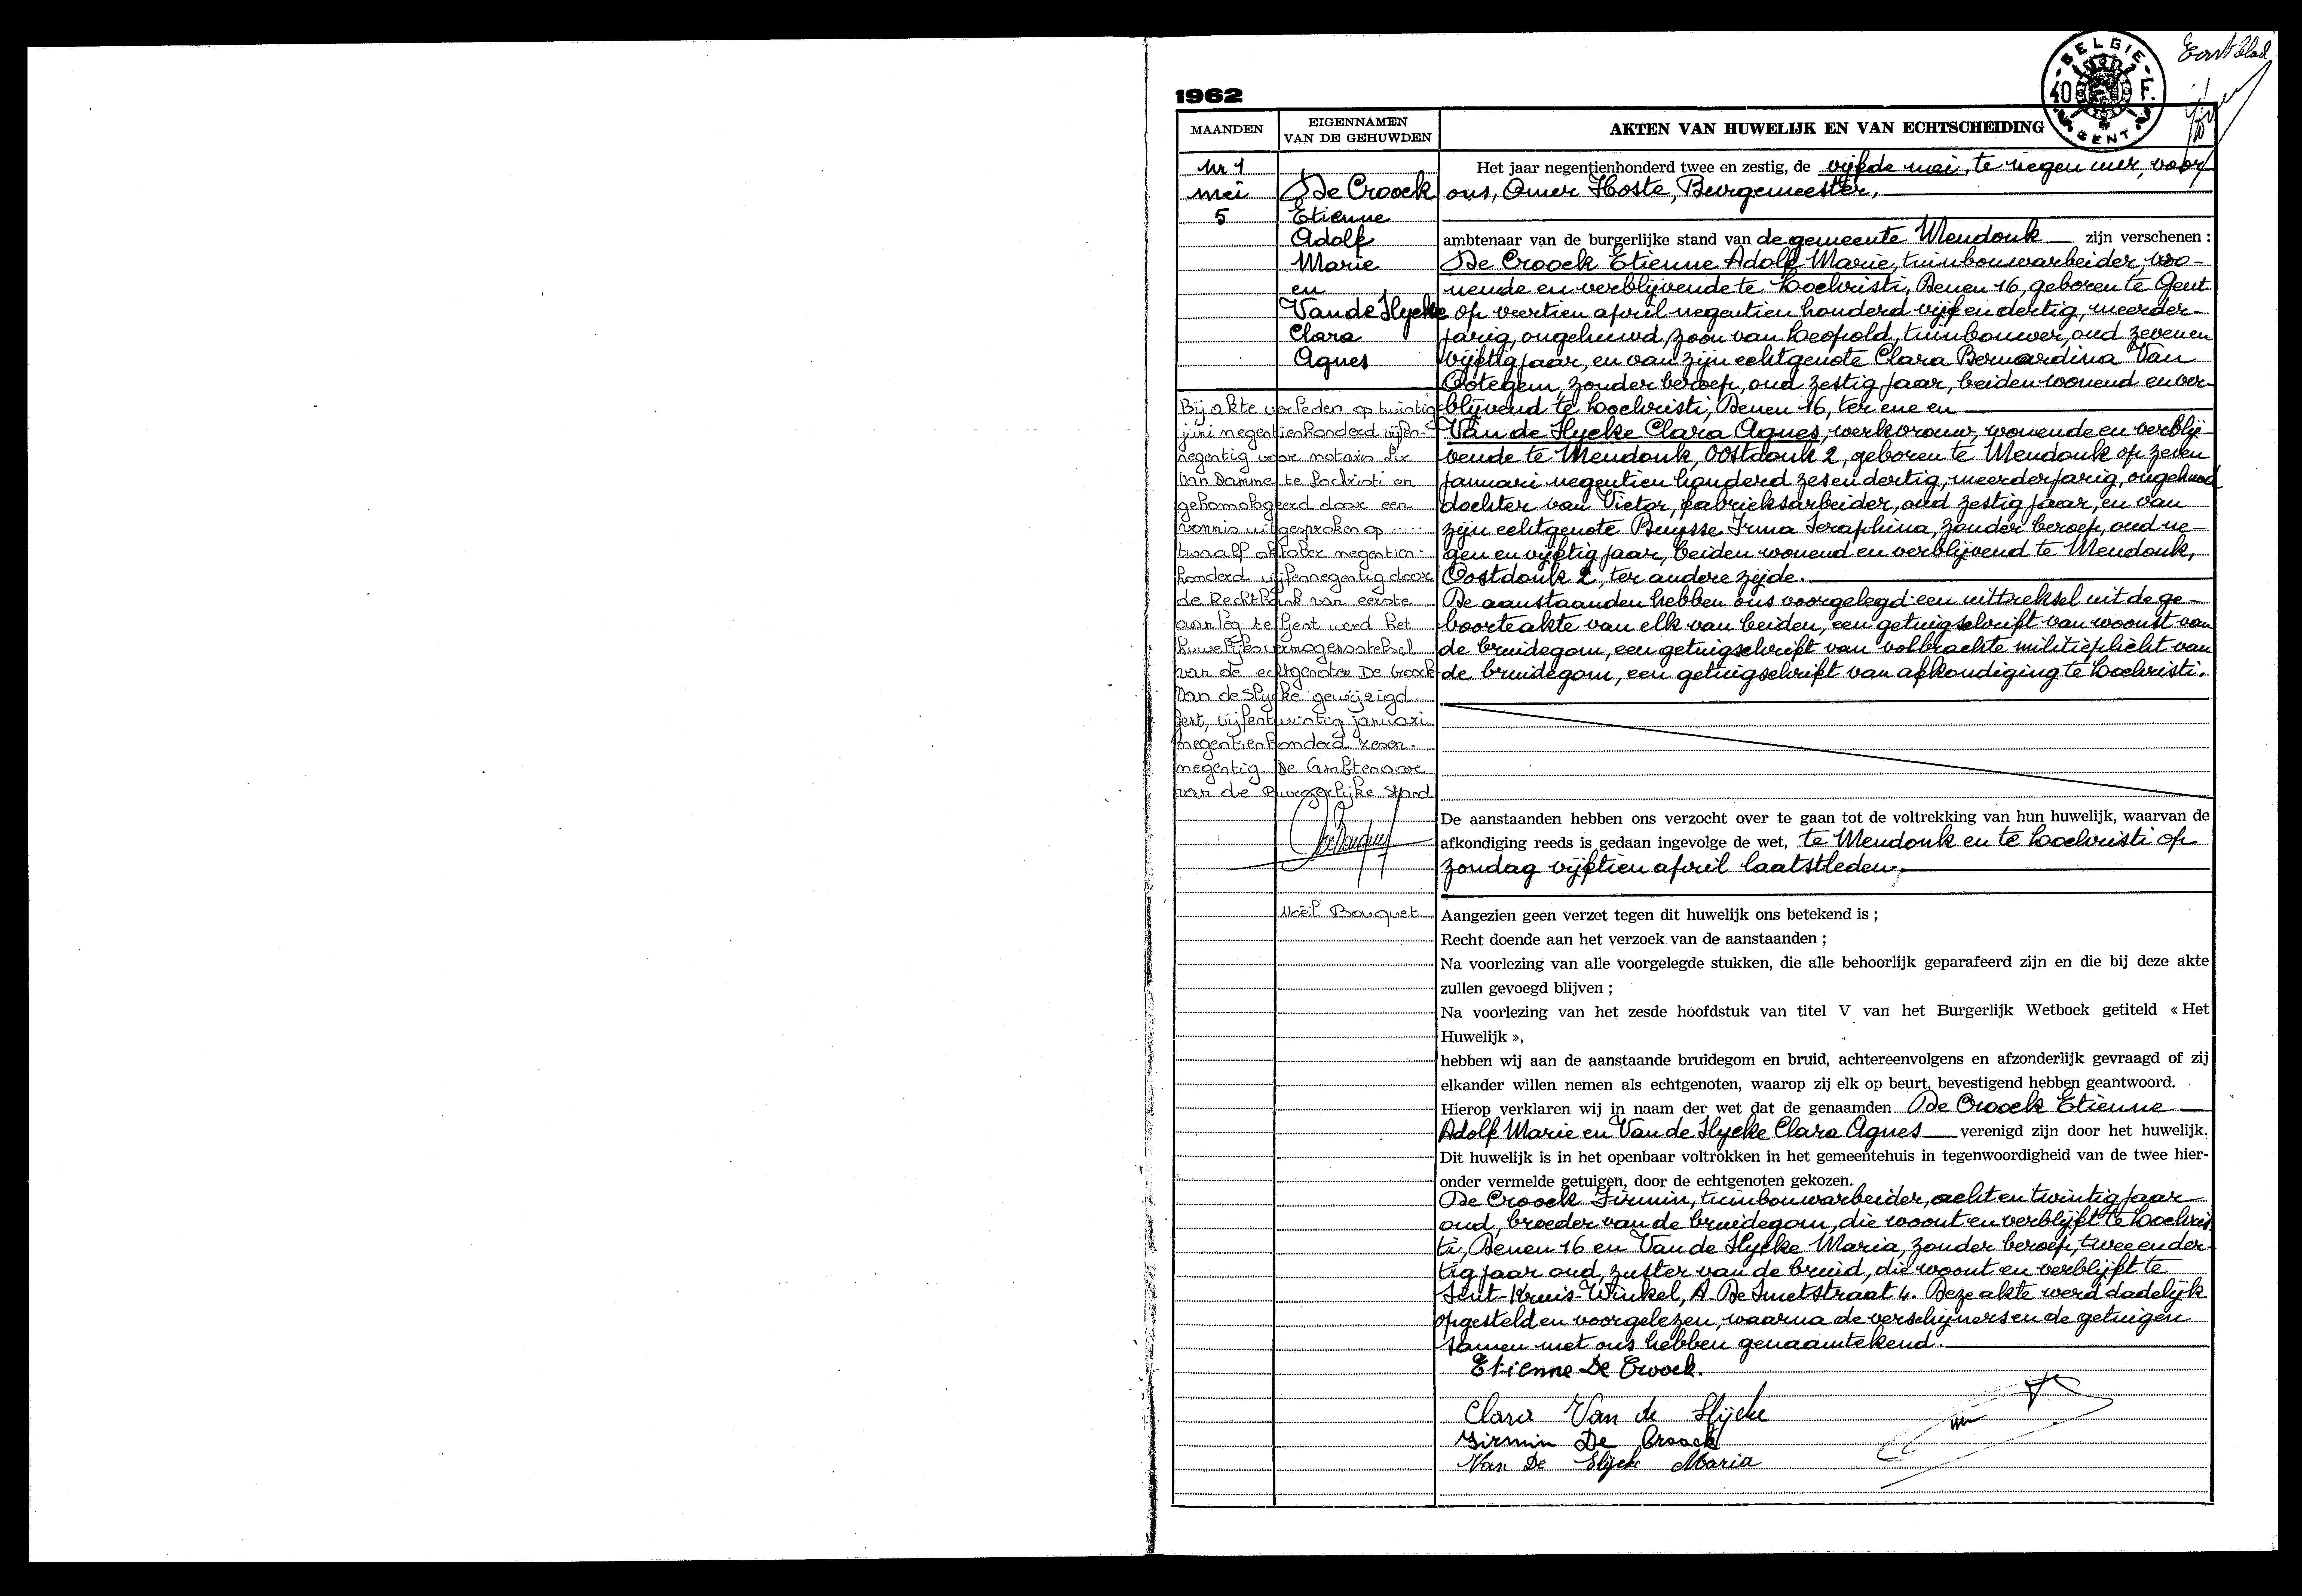 Eerste blad
BELGIE
40 F.
GENT
1962
MAANDEN
EIGENNAMEN
VAN DE GEHUWDEN
AKTEN VAN HUWELIJK EN VAN ECHTSCHEIDING
Nr 1
mei
5
De Croock
Etienne
Adolf
Marie
en
Van de Slycke
Clara
Agnes
Bij akte verleden op twintig
juni negentienhonderd vijfen-
negentig voor notaris Lix
Van Damme te Lochristi en
gehomologeerd door een
vonnis uitgesproken op .....
twaalf oktober negentien-
honderd vijfennegentig door
de Rechtbank van eerste
aanleg te Gent werd het
huwelijksvermogensstelsel
van de echtgenoten De Croock-
Van de Slycke gewijzigd.
Gent, vijfentwintig januari
negentienhonderd zesen-
negentig. De Ambtenaar
van de Burgerlijke Stand
Noël Bauquet
Het jaar negentienhonderd twee en zestig, de vijfde mei, te negen uur, voor
ons, Omer Hoste, Burgemeester,
ambtenaar van de burgerlijke stand van de gemeente Mendonk zijn verschenen :
De Croock Etienne Adolf Marie, tuinbouwarbeider, wo-
nende en verblijvende te Loochristi, Denen 16, geboren te Gent
op veertien april negentien honderd vijf en dertig, meerder-
jarig, ongehuwd, zoon van Leopold, tuinbouwer, oud zeven en
vijftig jaar, en van zijn echtgenote Clara Bernardina Van
Ootegem, zonder beroep, oud zestig jaar, beiden wonend en ver-
blijvend te Loochristi, Denen 16, ter ene en
Van de Slycke Clara Agnes, werkvrouw, wonende en verblij-
vende te Mendonk, Oostdonk 2, geboren te Mendonk op zeven
januari negentien honderd zes en dertig, meerderjarig, ongehuwd
dochter van Victor, fabrieksarbeider, oud zestig jaar, en van
zijn echtgenote Buysse Irma Seraphina, zonder beroep, oud ne-
gen en vijftig jaar, beiden wonend en verblijvend te Mendonk,
Oostdonk 2, ter andere zijde.
De aanstaanden hebben ons voorgelegd: een uittreksel uit de ge-
boorteakte van elk van beiden, een getuigschrift van woonst van
de bruidegom, een getuigschrift van volbrachte militieplicht van
de bruidegom, een getuigschrift van afkondiging te Loochristi.
De aanstaanden hebben ons verzocht over te gaan tot de voltrekking van hun huwelijk, waarvan de
afkondiging reeds is gedaan ingevolge de wet, te Mendonk en te Loochristi op
zondag vijftien april laatstleden,
Aangezien geen verzet tegen dit huwelijk ons betekend is ;
Recht doende aan het verzoek van de aanstaanden ;
Na voorlezing van alle voorgelegde stukken, die alle behoorlijk geparafeerd zijn en die bij deze akte
zullen gevoegd blijven ;
Na voorlezing van het zesde hoofdstuk van titel V van het Burgerlijk Wetboek getiteld « Het
Huwelijk »,
hebben wij aan de aanstaande bruidegom en bruid, achtereenvolgens en afzonderlijk gevraagd of zij
elkander willen nemen als echtgenoten, waarop zij elk op beurt, bevestigend hebben geantwoord.
Hierop verklaren wij in naam der wet dat de genaamden De Croock Etienne
Adolf Marie en Van de Slycke Clara Agnes verenigd zijn door het huwelijk.
Dit huwelijk is in het openbaar voltrokken in het gemeentehuis in tegenwoordigheid van de twee hier-
onder vermelde getuigen, door de echtgenoten gekozen.
De Croock Firmin, tuinbouwarbeider, acht en twintig jaar
oud, broeder van de bruidegom, die woont en verblijft te Loochris
ti, Denen 16 en Van de Slycke Maria, zonder beroep, twee en der-
tig jaar oud, zuster van de bruid, die woont en verblijft te
Sint-Kruis-Winkel, A. De Smetstraat 4. Deze akte werd dadelijk
opgesteld en voorgelezen, waarna de verschijners en de getuigen
samen met ons hebben genaamtekend.
Etienne De Croock.
Clara Van de Slijcke
Firmin De Croock
Van De Slijcke Maria